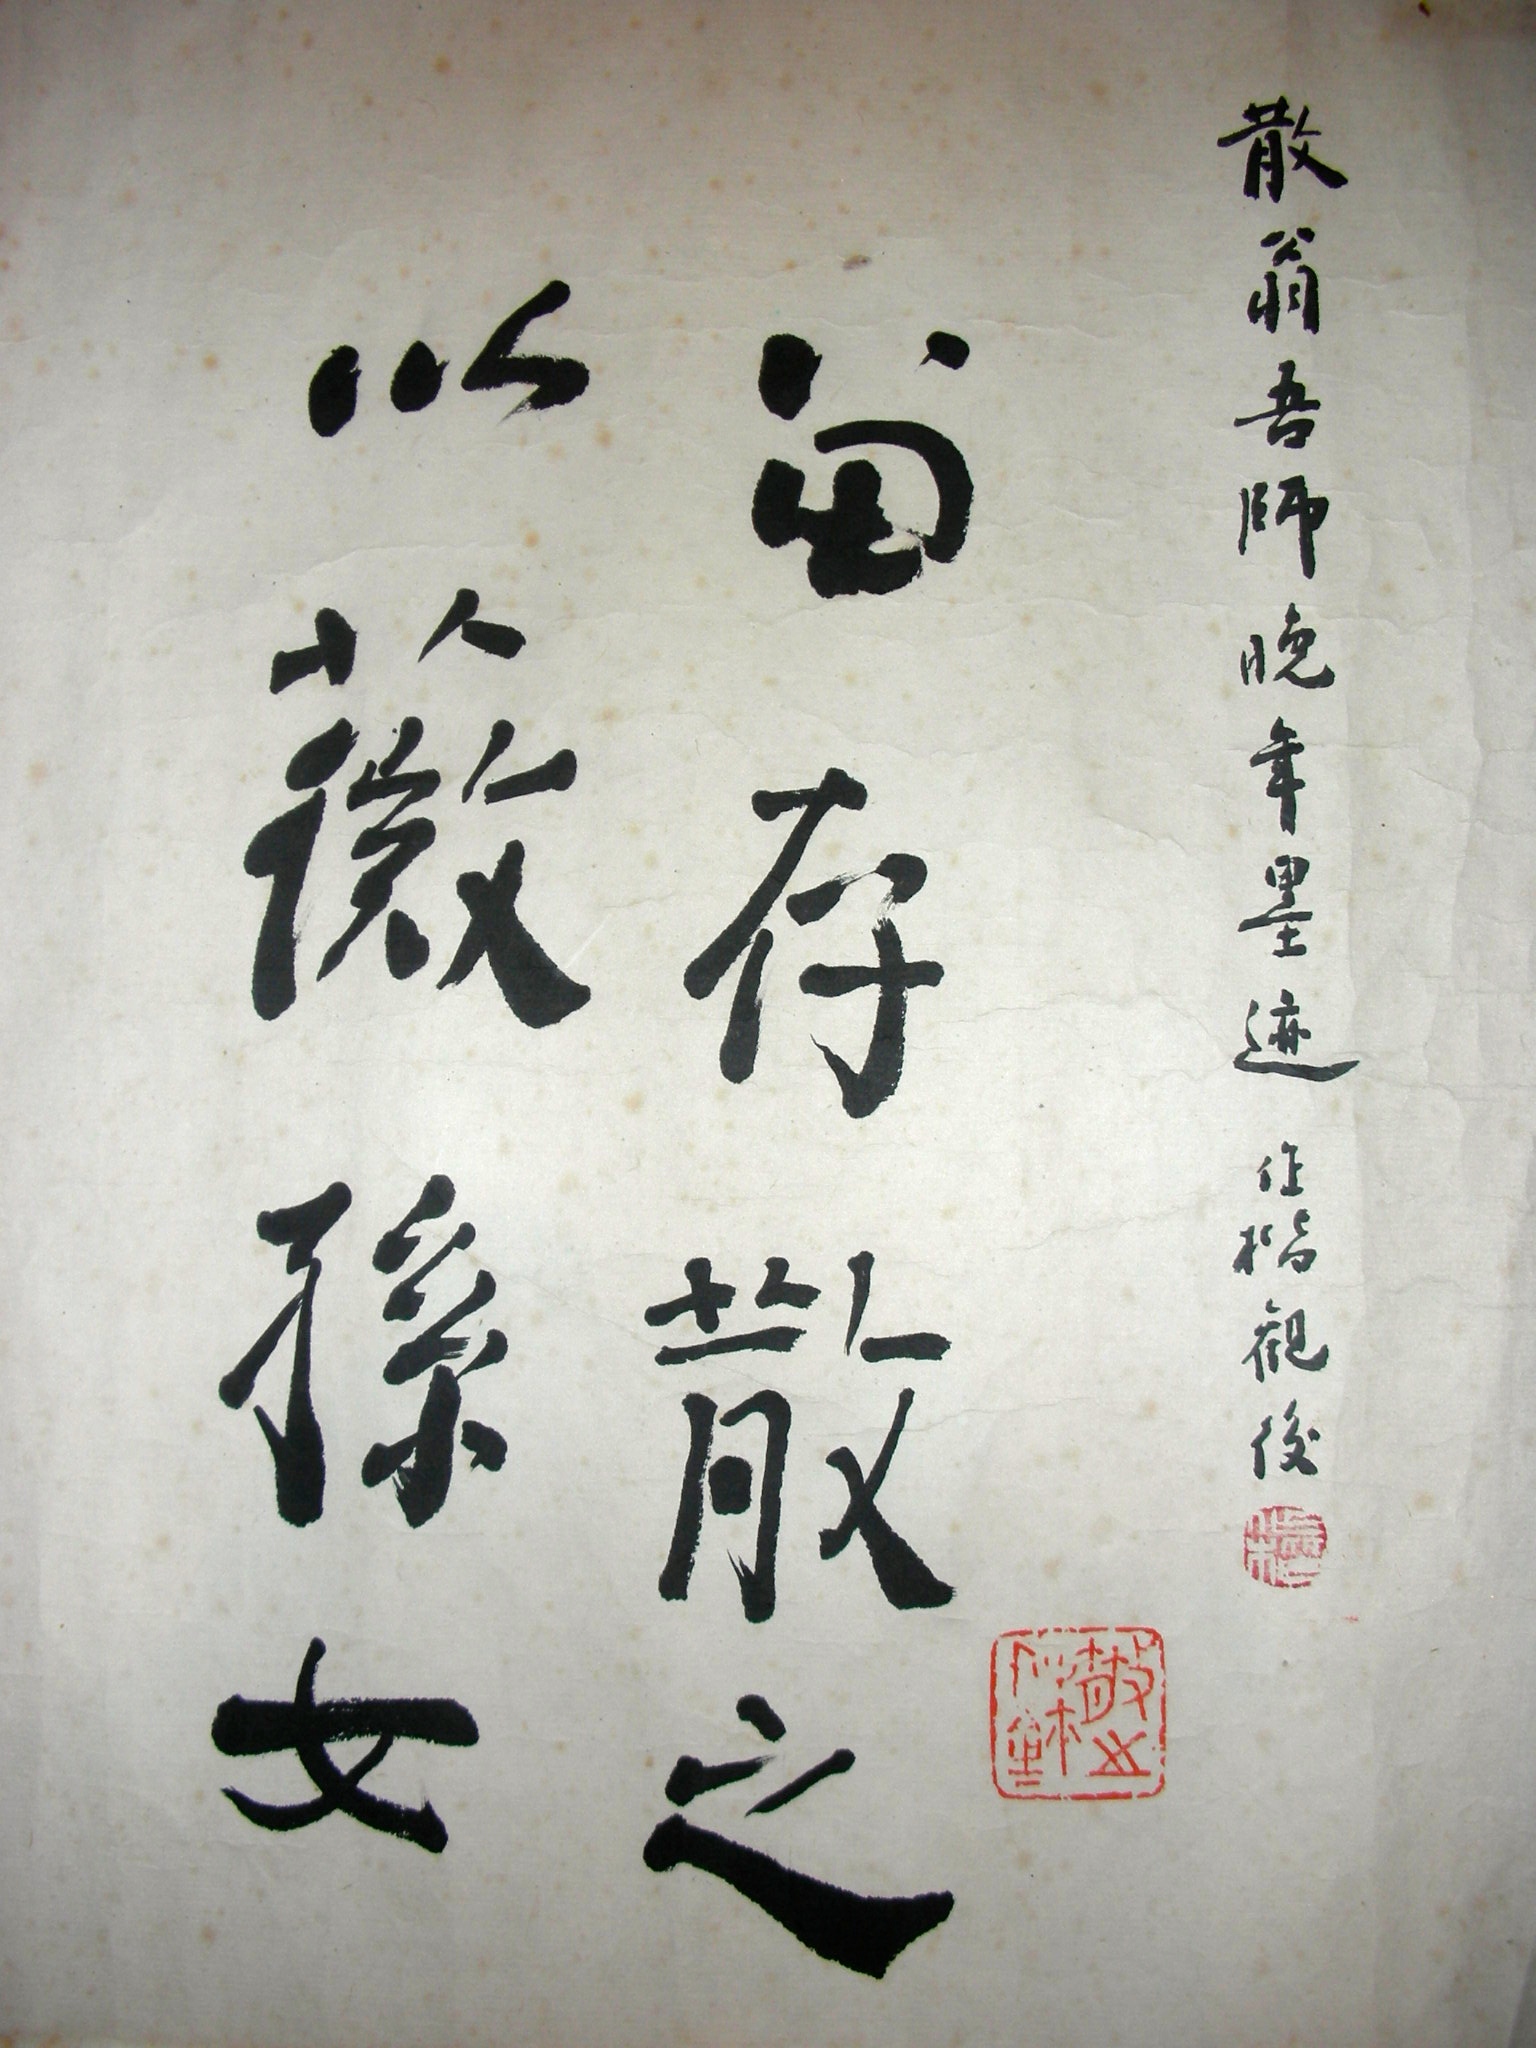 以薇孫女
留存散之
散翁吾師晚年墨迹 觀後